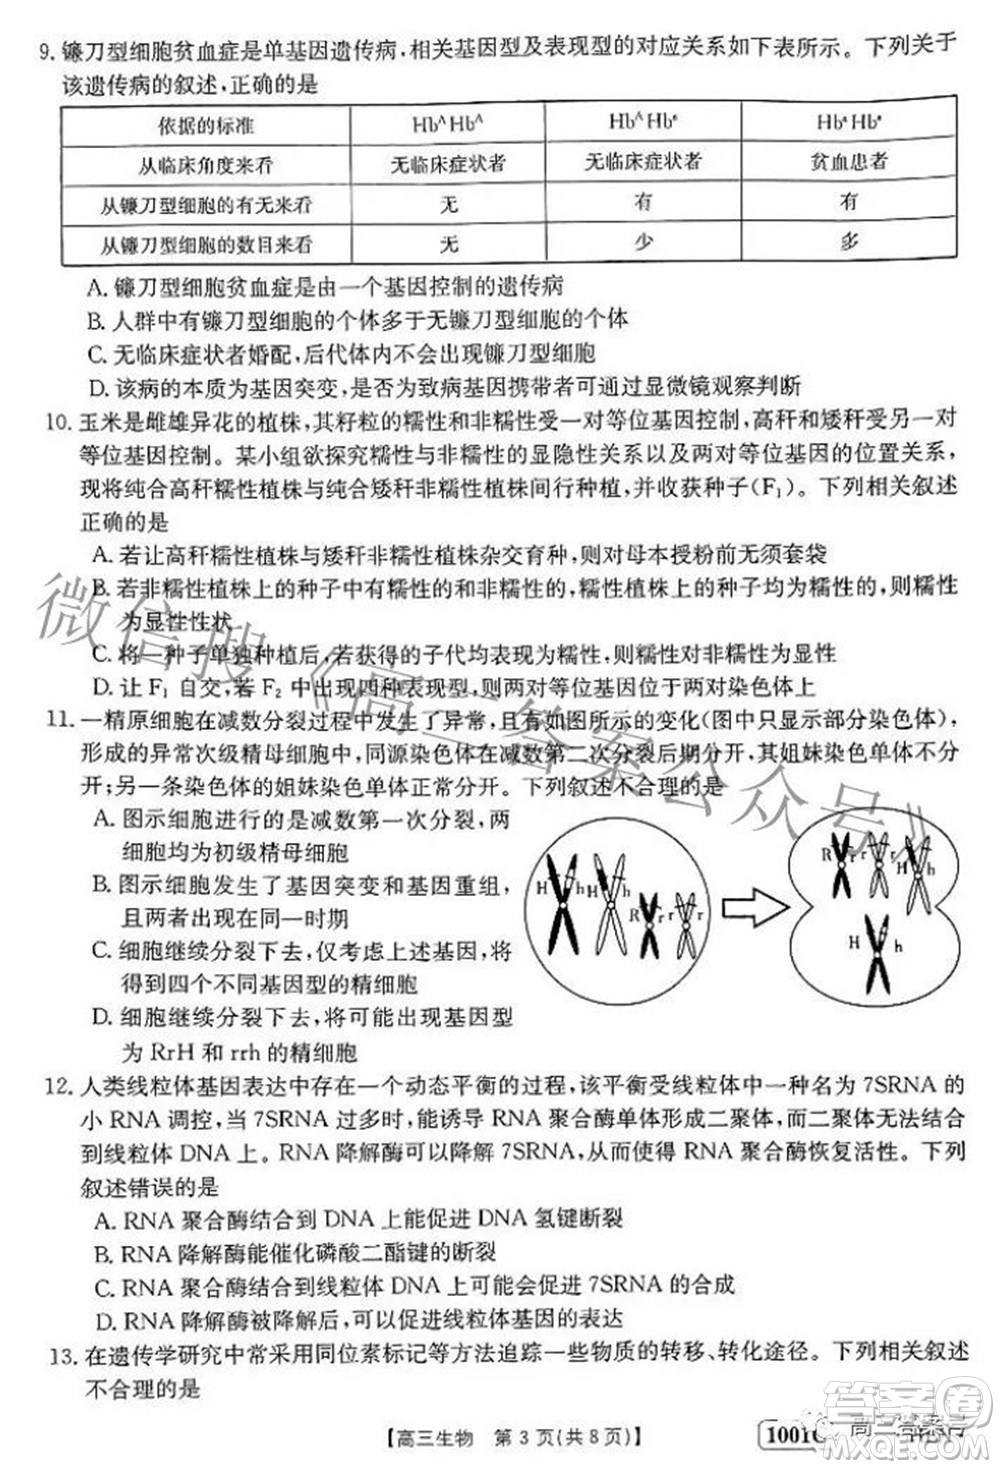 9. 镰刀型细胞贫血症是单基因遗传病,相关基因型及表现型的对应关系如下表所示。下列关于
该遗传病的叙述,正确的是
依据的标准 Hbᴬ Hbᴬ Hbᴬ Hbˢ Hbˢ Hbˢ
从临床角度来看 无临床症状者 无临床症状者 贫血患者
从镰刀型细胞的有无来看 无 有 有
从镰刀型细胞的数目来看 无 少 多
A. 镰刀型细胞贫血症是由一个基因控制的遗传病
B. 人群中有镰刀型细胞的个体多于无镰刀型细胞的个体
C. 无临床症状者婚配,后代体内不会出现镰刀型细胞
D. 该病的本质为基因突变,是否为致病基因携带者可用显微镜观察判断
10. 玉米是雌雄异花的植株,其籽粒的糯性和非糯性受一对等位基因控制,高秆和矮秆受另一对
等位基因控制。某小组欲探究糯性与非糯性的显隐性关系以及两对等位基因的位置关系,
现将纯合高秆糯性植株与纯合矮秆非糯性植株间行种植,并收获种子(F₁)。下列相关叙述
正确的是
A. 若让高秆糯性植株与矮秆非糯性植株杂交育种,则对母本授粉前无须套袋
B. 若非糯性植株上的种子中有糯性和非糯性种子,则说明糯性
为显性性状
C. 将一种子单独种植后,若获得的子代均表现为糯性,则说明非糯性为显性
D. 让 F₁ 自交,若 F₂ 中出现四种表现型,则两对等位基因位于两对染色体上
11. 一精原细胞在减数分裂过程中发生了异常,且有如图所示的变化(图中只显示部分染色体),
形成的异常次级精母细胞中,同源染色体在减数第二次分裂后期分开,其姐妹染色单体不分
开;另一条染色体的姐妹染色单体正常分开。下列叙述不合理的是
A. 图示细胞进行的是减数第一次分裂,两
细胞均为初级精母细胞
B. 图示细胞发生了基因突变和基因重组,
且两者出现在同一时期
C. 细胞继续分裂下去,仅考虑上述基因,得
到四个不同基因型的精细胞
D. 细胞继续分裂下去,可能出现基因型
为 RrH 和 rrh 的精细胞
H h H h R r r r
R r r r H h
H h
12. 人类线粒体基因表达中存在一个动态平衡的过程,该平衡受线粒体中一种名为 7SRNA 的
小 RNA 调控,当 7SRNA 过多时,能诱导 RNA 聚合酶单体形成二聚体,而二聚体无法结合
到线粒体 DNA 上。RNA 降解酶可以降解 7SRNA,从而使 RNA 聚合酶恢复活性。下列
叙述错误的是
A. RNA 聚合酶结合到 DNA 上能促进 DNA 氢键断裂
B. RNA 降解酶能催化磷酸二酯键的断裂
C. RNA 聚合酶结合到线粒体 DNA 上可能会促进 7SRNA 的合成
D. RNA 降解酶被降解后,可促进线粒体基因的表达
13. 在遗传学研究中常采用同位素标记等方法追踪一些物质的转移、转化途径。下列相关叙述
不合理的是
【高三生物 第 3 页(共 8 页)】
1001C
微信搜《高三答案公众号》
答案圈
MXQE.COM